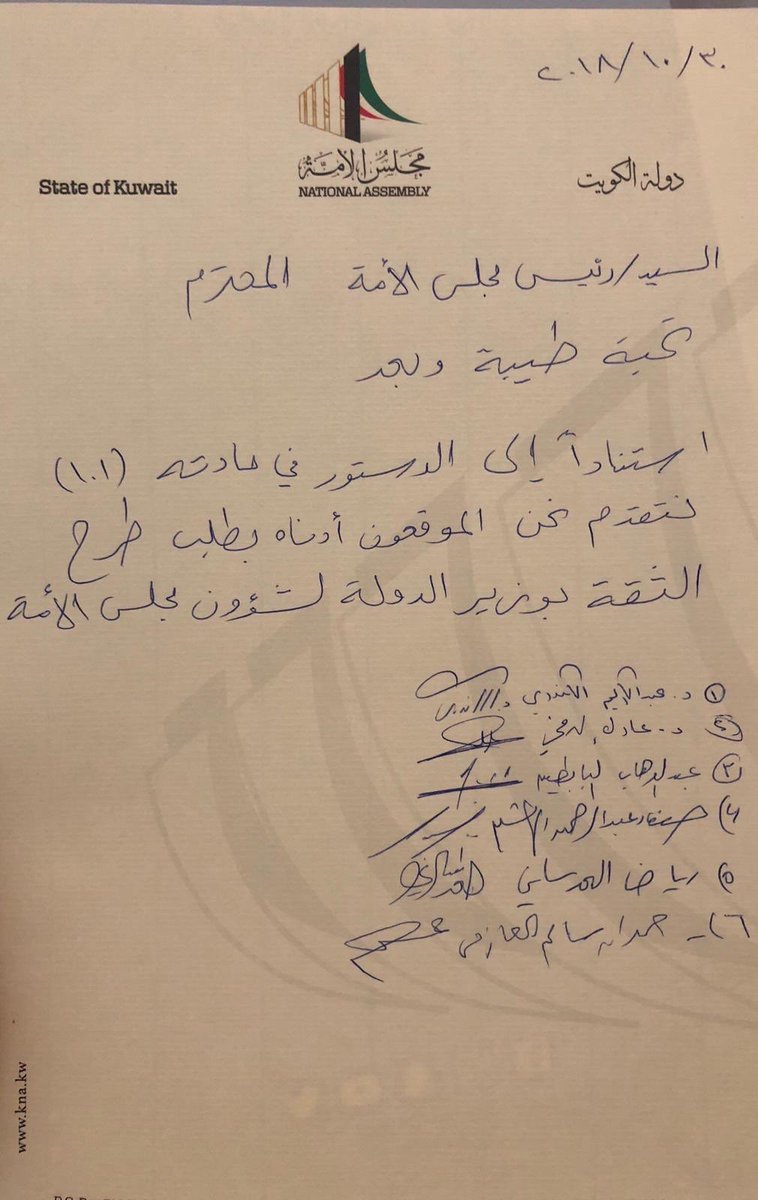 ٢٠١٨/١٠/٣٠
مجلس الأمة
NATIONAL ASSEMBLY
State of Kuwait
دولة الكويت
السيد/رئيس مجلس الأمة المحترم
تحية طيبة وبعد
استناداً إلى الدستور في مادته (١٠١)
نتقدم نحن الموقعون أدناه بطلب طرح
الثقة بوزير الدولة لشؤون مجلس الأمة
١ د. عبدالكريم الكندري
٢ د. عادل الدمخي
٣ عبدالوهاب البابطين
٤) عبدالرحمن
٥) رياض العدساني
٦)- حمدان سالم العازمي
www.kna.kw